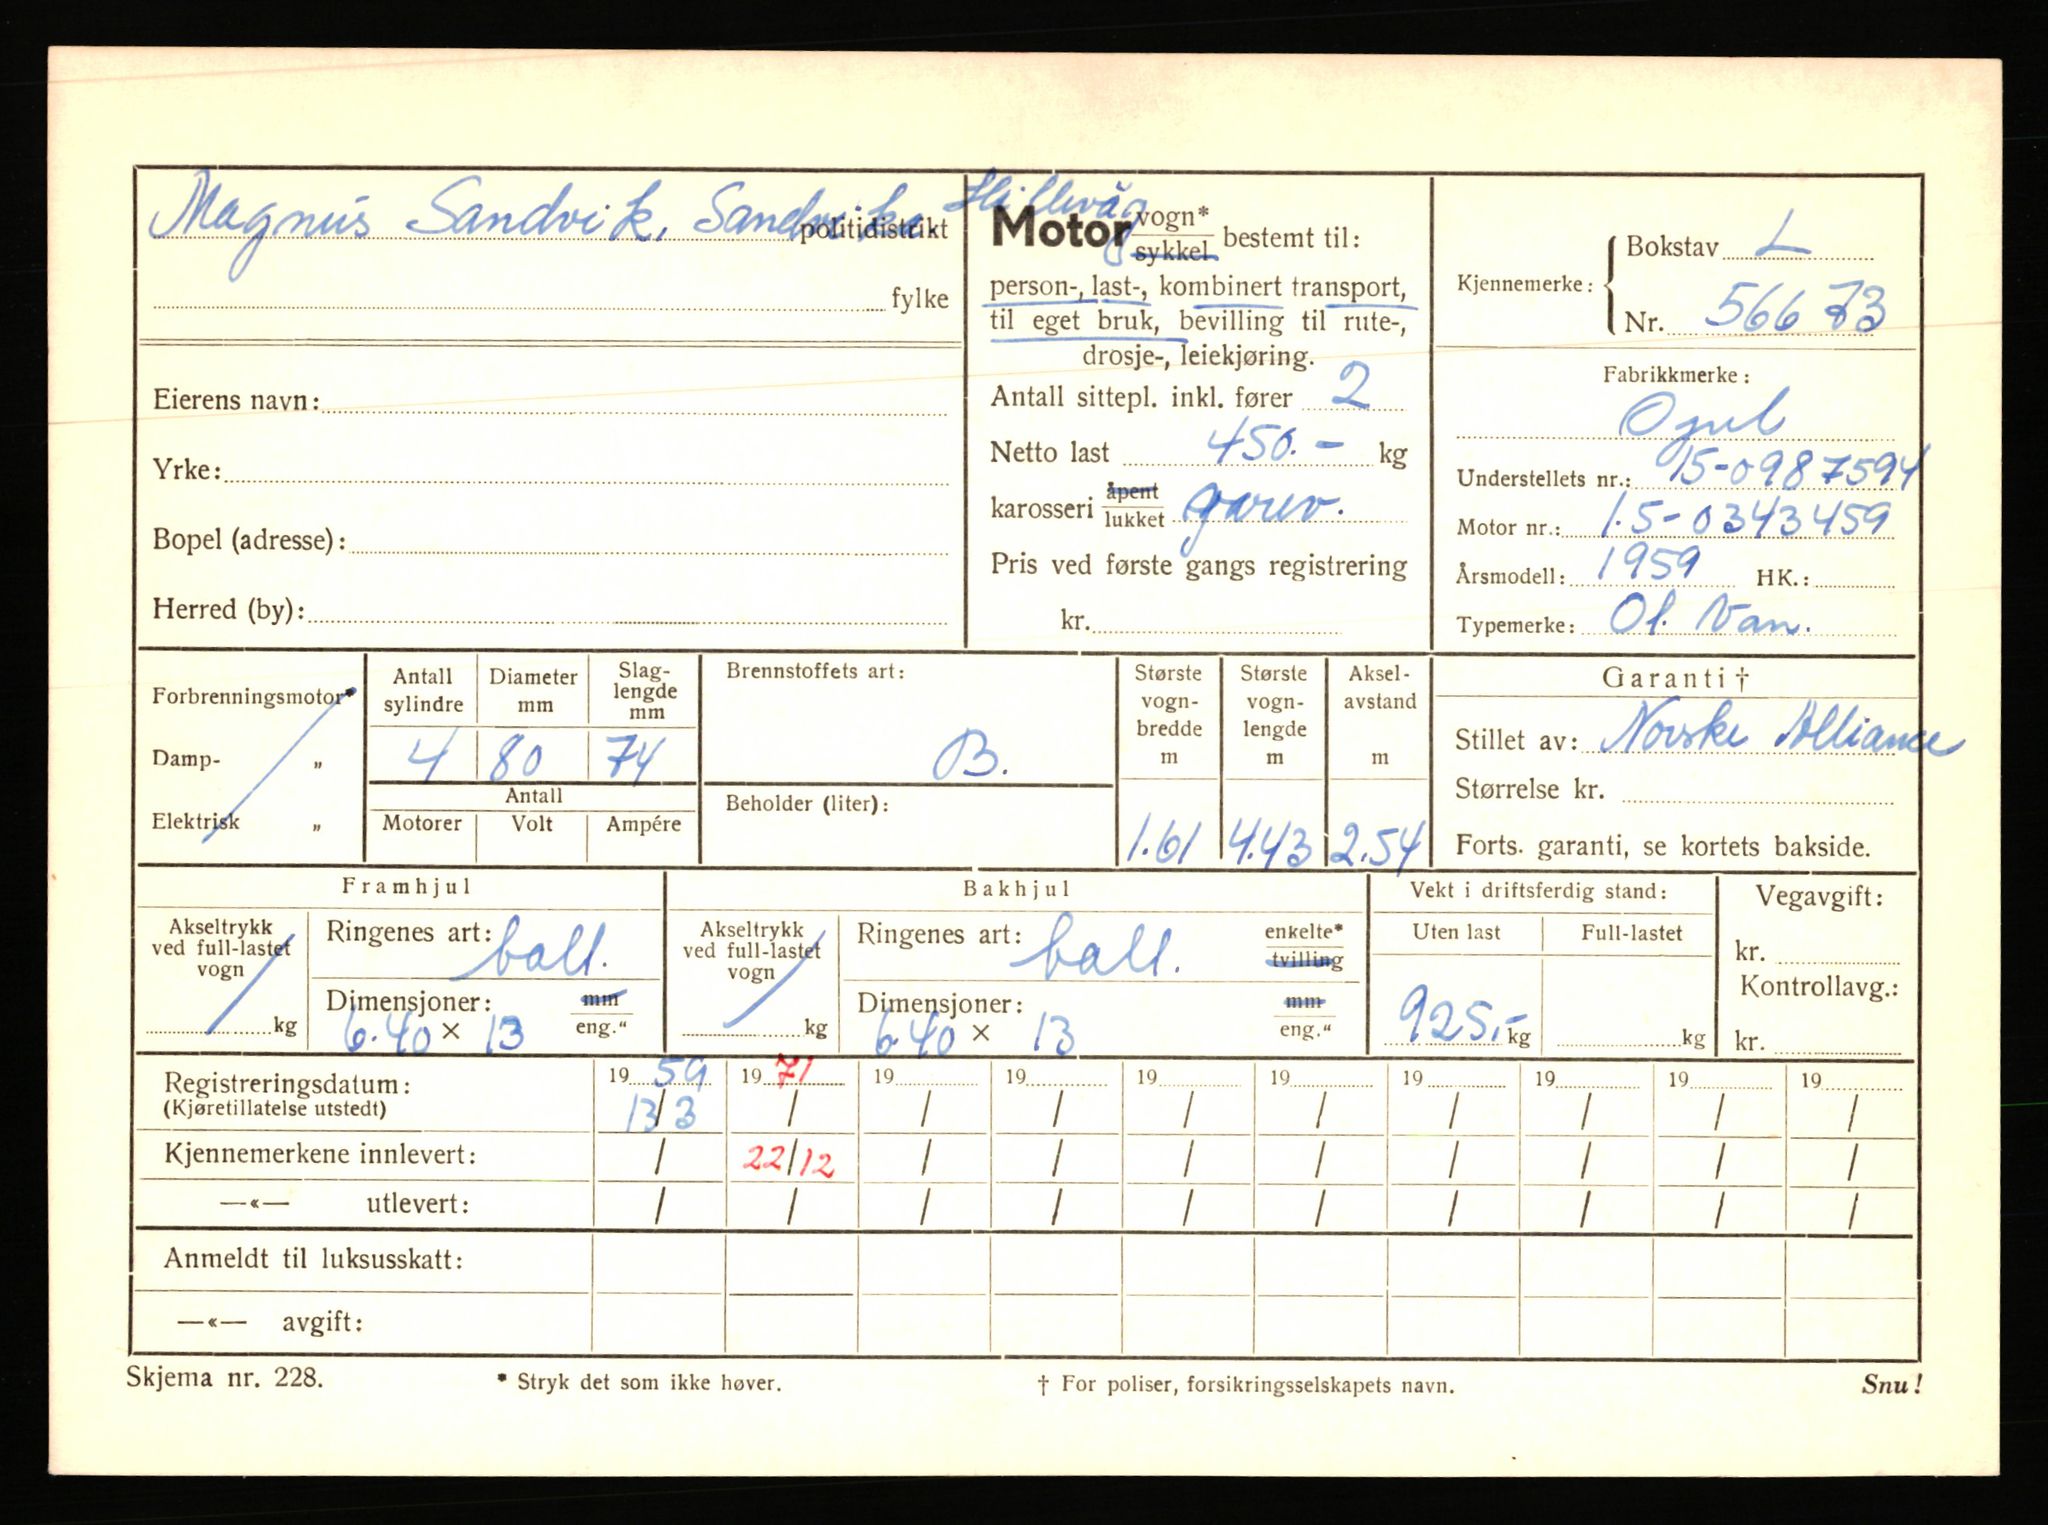 Magnus Sandvik, Sandvika Hillevåg
politidistrikt
fylke
Eierens navn:
Yrke:
Bopel (adresse):
Herred (by):
Motor vogn* sykkel bestemt til:
person-, last-, kombinert transport,
til eget bruk, bevilling til rute-,
drosje-, leiekjøring.
Antall sittepl. inkl. fører 2
Netto last 450.- kg
karosseri åpent lukket varev.
Pris ved første gangs registrering
kr.
Kjennemerke: Bokstav L
Nr. 56673
Fabrikkmerke:
Opel
Understellets nr.: 15-0987594
Motor nr.: 1.5-0343459
Årsmodell: 1959 HK.:
Typemerke: Ol. Van.
Forbrenningsmotor*
Damp- „
Elektrisk „
Antall sylindre 4
Diameter mm 80
Slag-lengde mm 74
Antall
Motorer Volt Ampére
Brennstoffets art: B.
Beholder (liter):
Største vogn-bredde m 1.61
Største vogn-lengde m 4.43
Aksel-avstand m 2.54
Garanti †
Stillet av: Norske Alliance
Størrelse kr.
Forts. garanti, se kortets bakside.
Framhjul
Akseltrykk ved full-lastet vogn kg
Ringenes art: ball.
Dimensjoner: 6.40 × 13 mm eng."
Bakhjul
Akseltrykk ved full-lastet vogn kg
Ringenes art: ball. enkelte* tvilling
Dimensjoner: 6.40 × 13 mm eng."
Vekt i driftsferdig stand:
Uten last Full-lastet
925,- kg kg
Vegavgift:
kr.
Kontrollavg.:
kr.
Registreringsdatum: 19 59 19 71 19 19 19 19 19 19 19 19
(Kjøretillatelse utstedt) 13/3 / / / / / / / / /
Kjennemerkene innlevert: / 22/12 / / / / / / / /
—«— utlevert: / / / / / / / / / /
Anmeldt til luksusskatt:
—«— avgift:
Skjema nr. 228. * Stryk det som ikke høver. † For poliser, forsikringsselskapets navn. Snu!